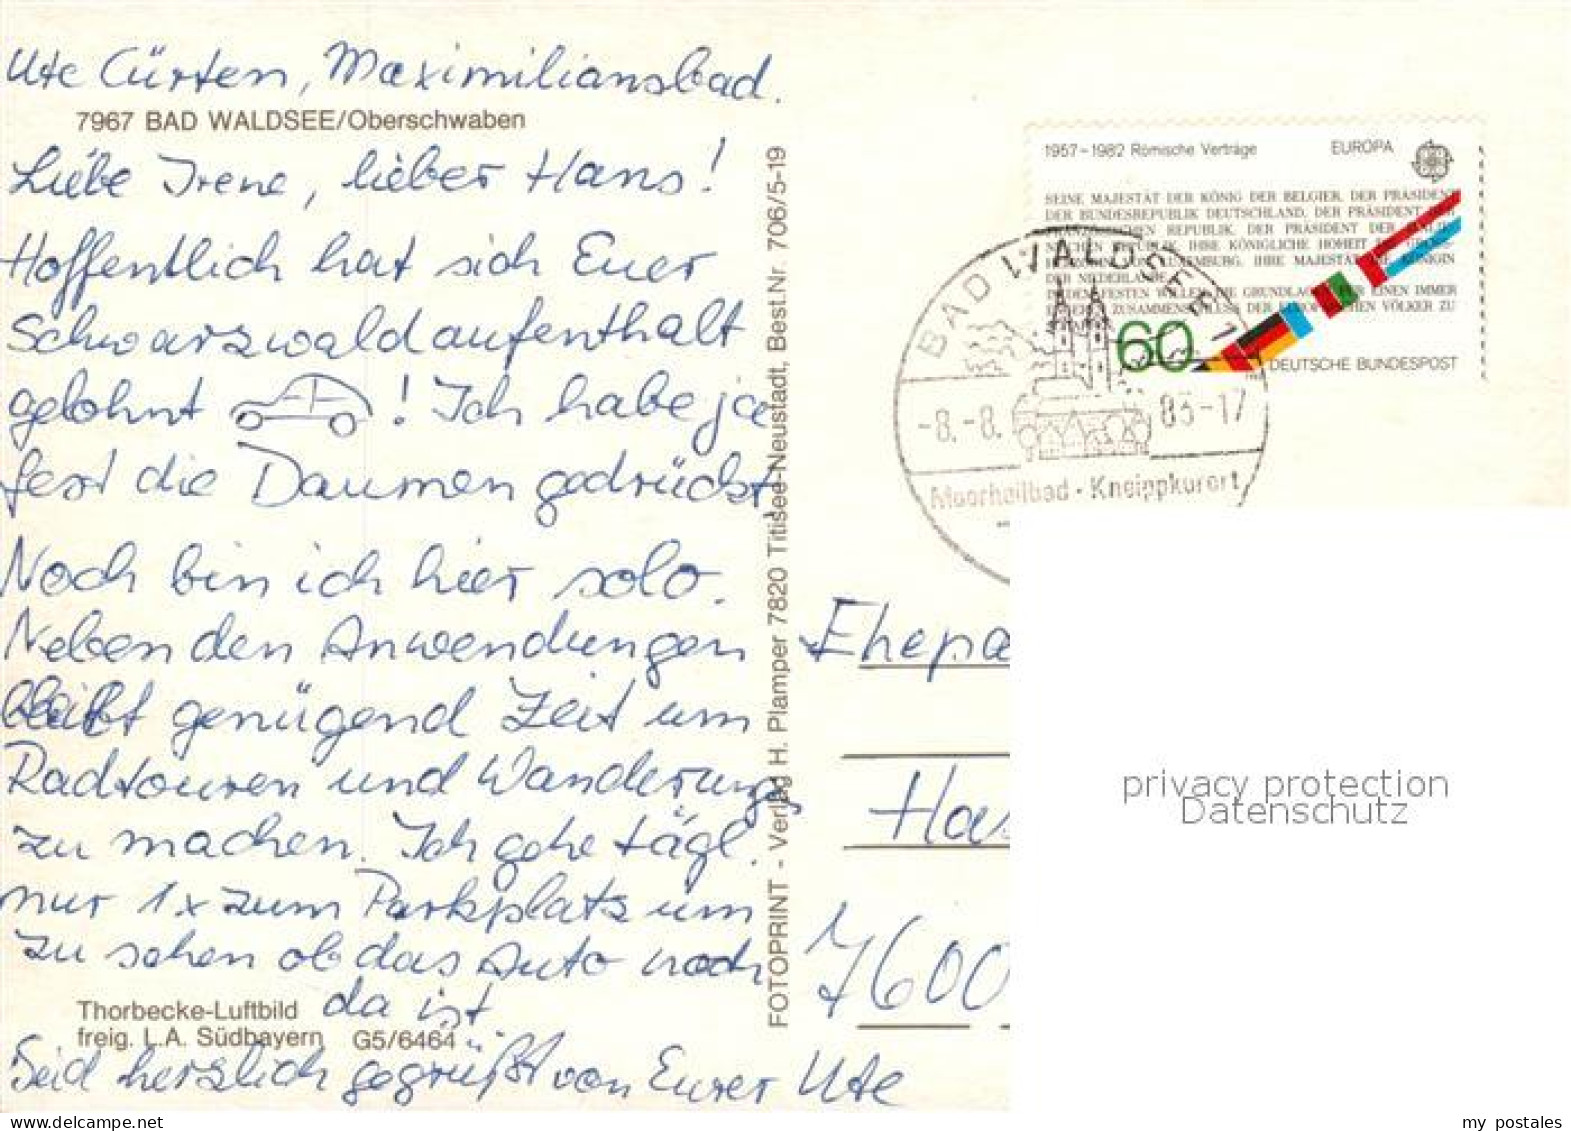 Ute Cürten, Maximiliansbad.
7967 BAD WALDSEE/Oberschwaben
Liebe Irene, lieber Hans!
Hoffentlich hat sich Euer
Schwarzwaldaufenthalt
gelohnt ! Ich habe ja
fest die Daumen gedrückt,
Noch bin ich hier solo.
Neben den Anwendungen
bleibt genügend Zeit um
Radtouren und Wanderung.
zu machen. Ich gehe tägl.
nur 1x zum Parkplatz um
zu sehen ob das Auto noch
da ist
Thorbecke-Luftbild
freig. L.A. Südbayern G5/6464
Seid herzlich gegrüßt von Eurer Ute
FOTOPRINT - Verlag H. Plamper 7820 Titisee-Neustadt, Best.Nr. 706/5-19
1957-1982 Römische Verträge EUROPA
SEINE MAJESTÄT DER KÖNIG DER BELGIER, DER PRÄSIDENT
DER BUNDESREPUBLIK DEUTSCHLAND, DER PRÄSIDENT DER
FRANZÖSISCHEN REPUBLIK, DER PRÄSIDENT DER
REPUBLIK, IHRE KÖNIGLICHE HOHEIT
LUXEMBURG, IHRE MAJESTÄT KÖNIGIN
DER NIEDERLANDE,
FESTEN WILLEN, DIE GRUNDLAGEN FÜR EINEN IMMER
DER VÖLKER ZU
60
DEUTSCHE BUNDESPOST
BAD WALDSEE 1
-8.-8. 83-17
Moorheilbad · Kneippkurort
Ehepa
Ha
7600
privacy protection
Datenschutz
my postales